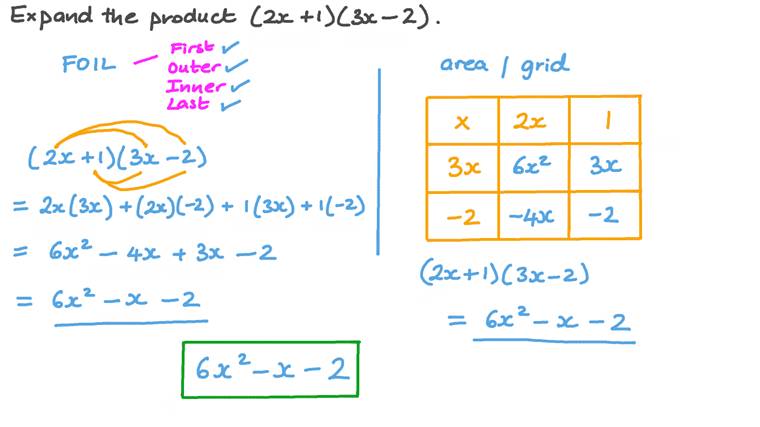 Expand the product (2x+1)(3x−2).
FOIL
First ✓
Outer ✓
Inner ✓
Last ✓
(2x+1)(3x−2)
= 2x(3x)+(2x)(−2)+1(3x)+1(−2)
= 6x² − 4x + 3x − 2
= 6x² − x − 2
area / grid
× 2x 1
3x 6x² 3x
−2 −4x −2
(2x+1)(3x−2)
= 6x² − x − 2
6x² − x − 2